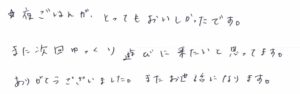 夜ごはんが、とってもおいしかったです。
また次回ゆっくり遊びに来たいと思ってます。
ありがとうございました。またお世話になります。